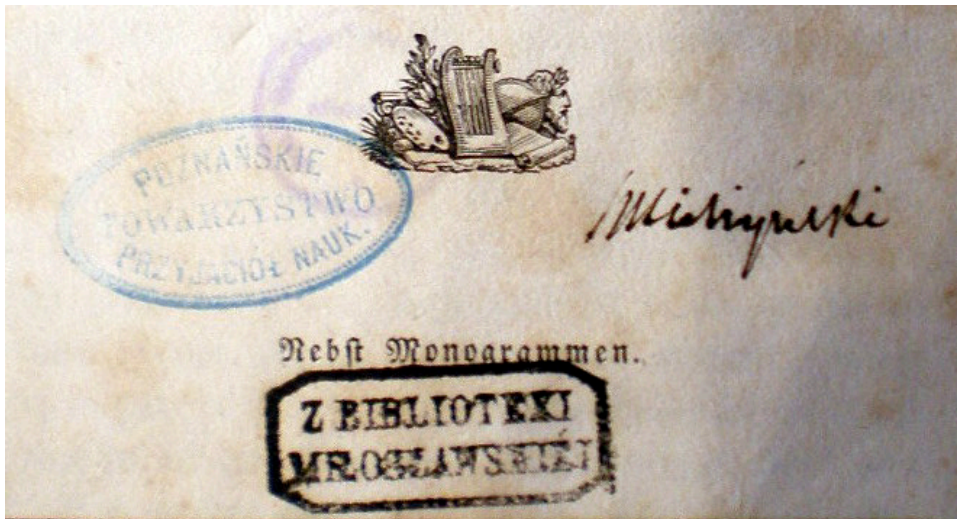 POZNAŃSKIE
TOWARZYSTWO
PRZYJACIÓŁ NAUK.
Nebſt Monogrammen.
Z BIBLIOTEKI
MIŁOSŁAWSKIÉJ